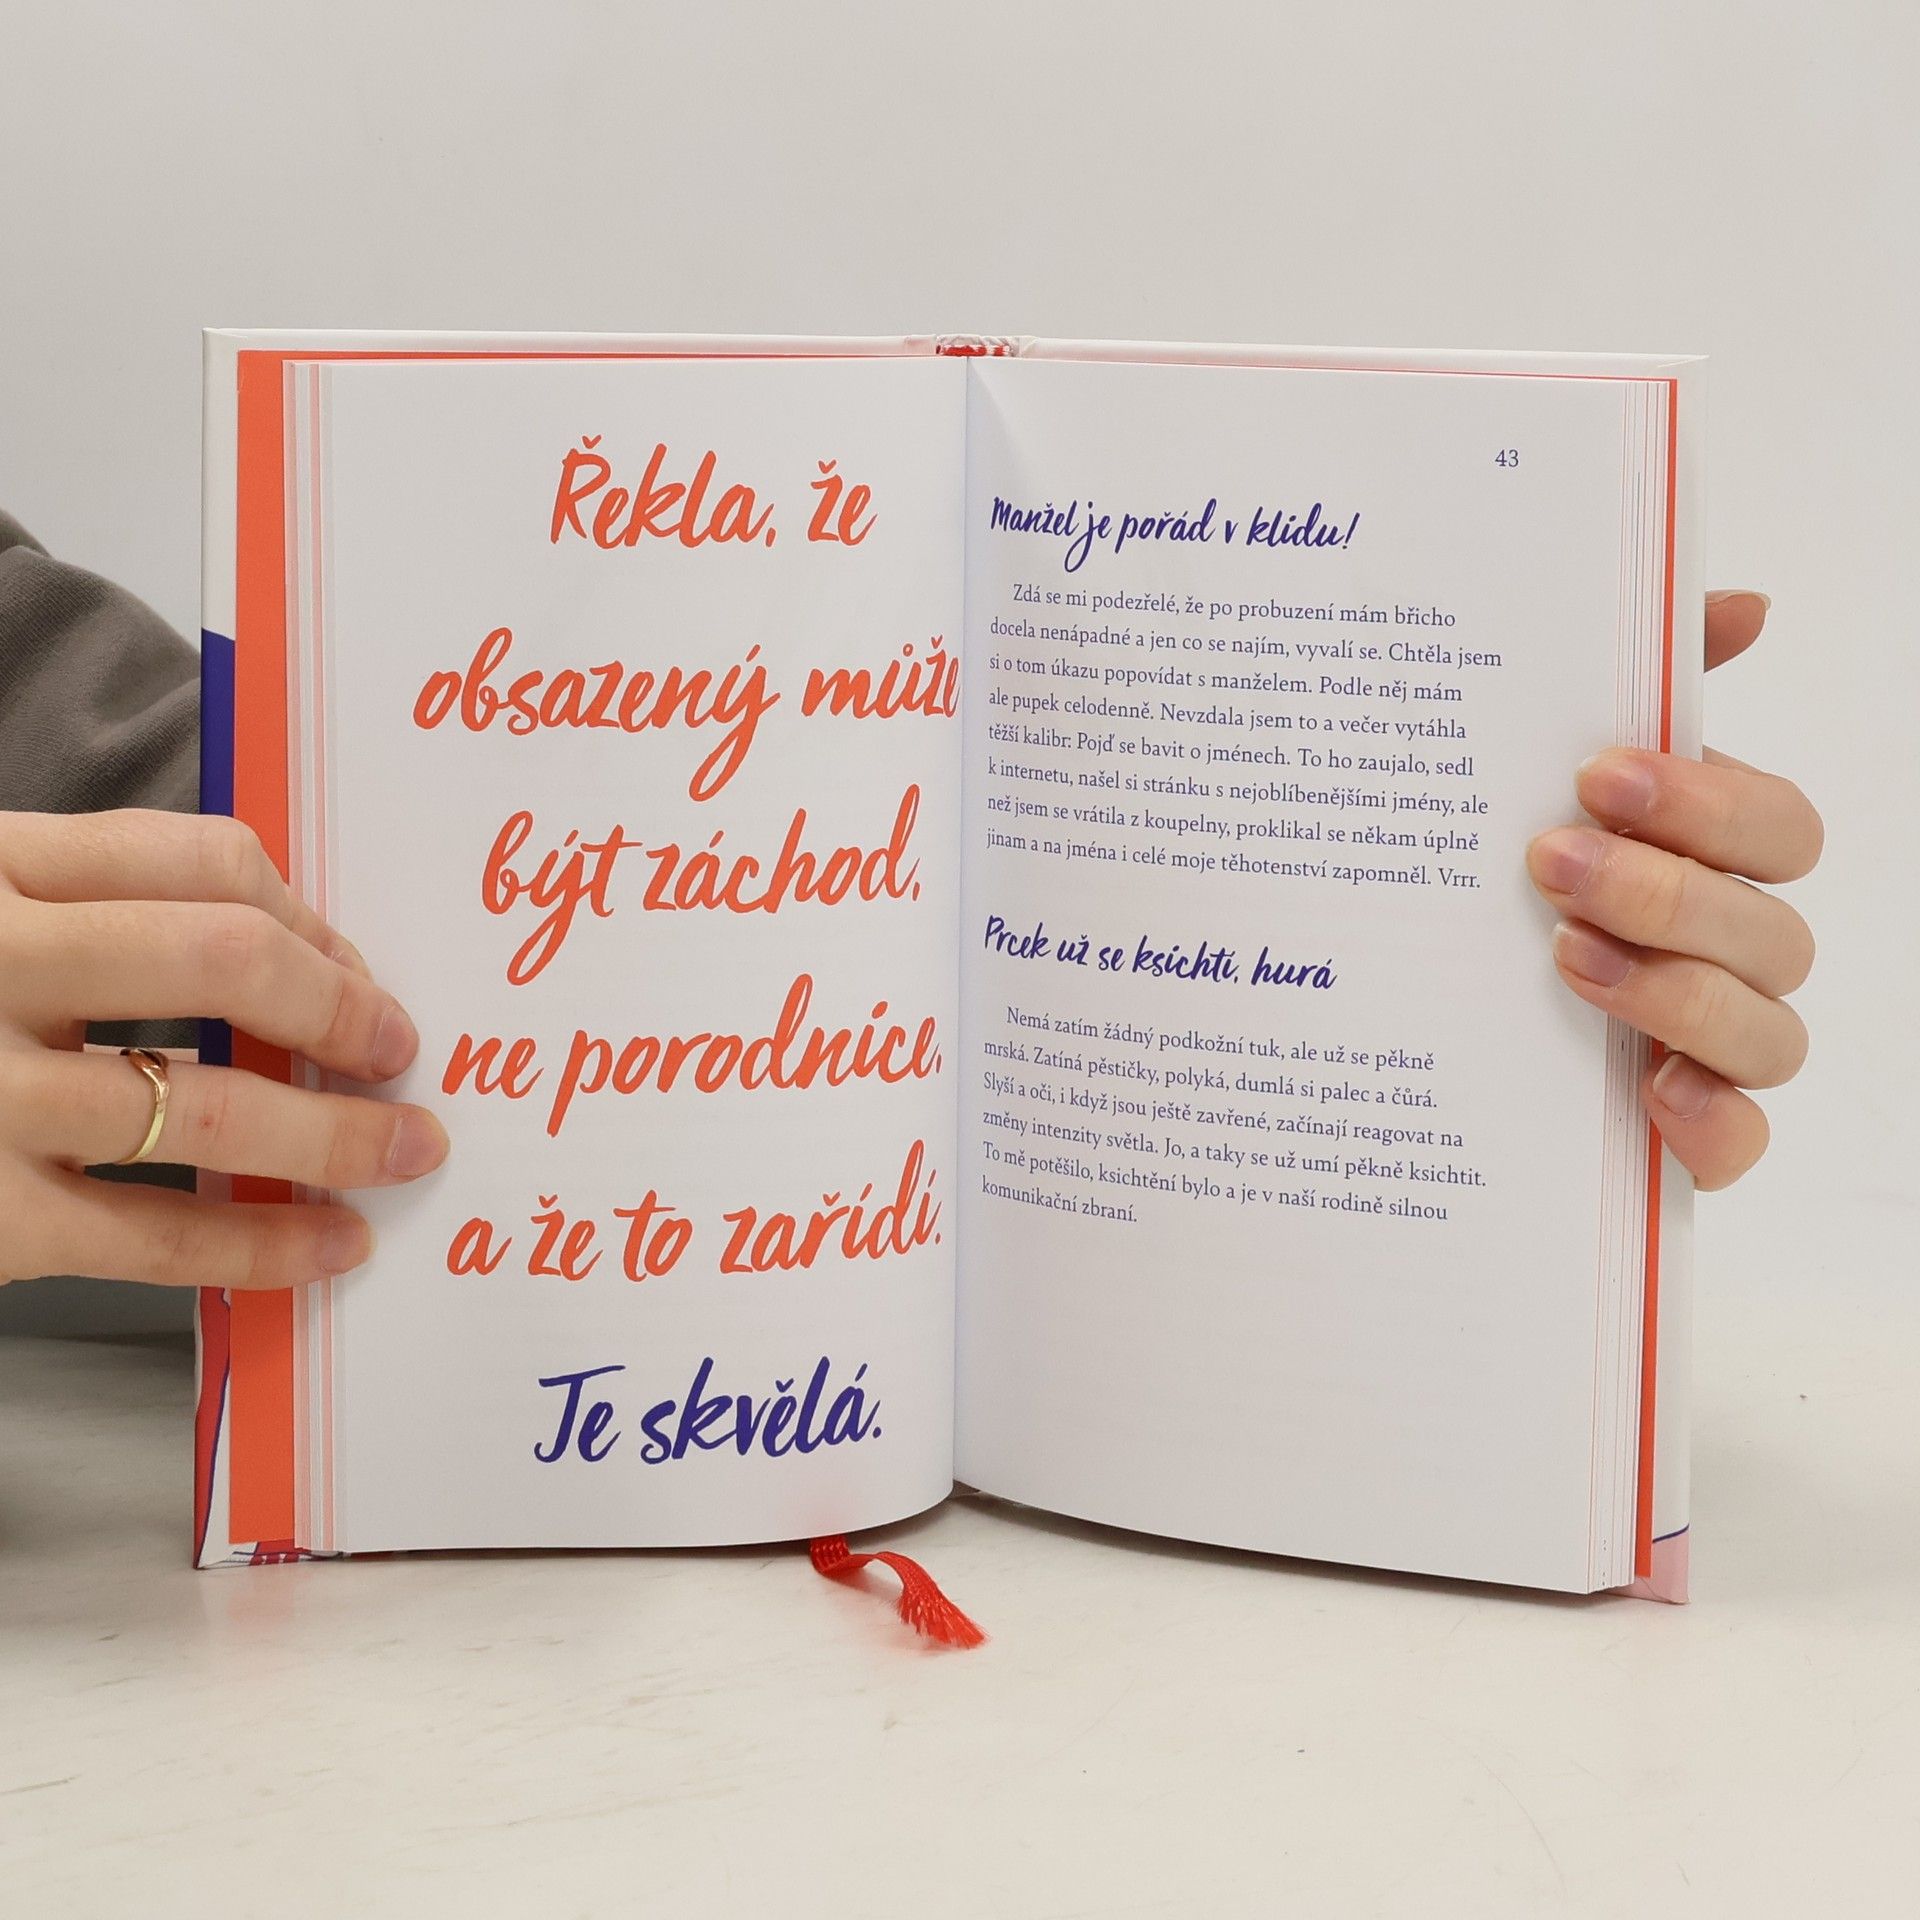 Řekla, že
obsazený může
být záchod,
ne porodnice,
a že to zařídí.
Je skvělá.
43
Manžel je pořád v klidu!
Zdá se mi podezřelé, že po probuzení mám břicho
docela nenápadné a jen co se najím, vyvalí se. Chtěla jsem
si o tom úkazu popovídat s manželem. Podle něj mám
ale pupek celodenně. Nevzdala jsem to a večer vytáhla
těžší kalibr: Pojď se bavit o jménech. To ho zaujalo, sedl
k internetu, našel si stránku s nejoblíbenějšími jmény, ale
než jsem se vrátila z koupelny, proklikal se někam úplně
jinam a na jména i celé moje těhotenství zapomněl. Vrrr.
Prcek už se ksichtí, hurá
Nemá zatím žádný podkožní tuk, ale už se pěkně
mrská. Zatíná pěstičky, polyká, dumlá si palec a čůrá.
Slyší a oči, i když jsou ještě zavřené, začínají reagovat na
změny intenzity světla. Jo, a taky se už umí pěkně ksichtit.
To mě potěšilo, ksichtění bylo a je v naší rodině silnou
komunikační zbraní.